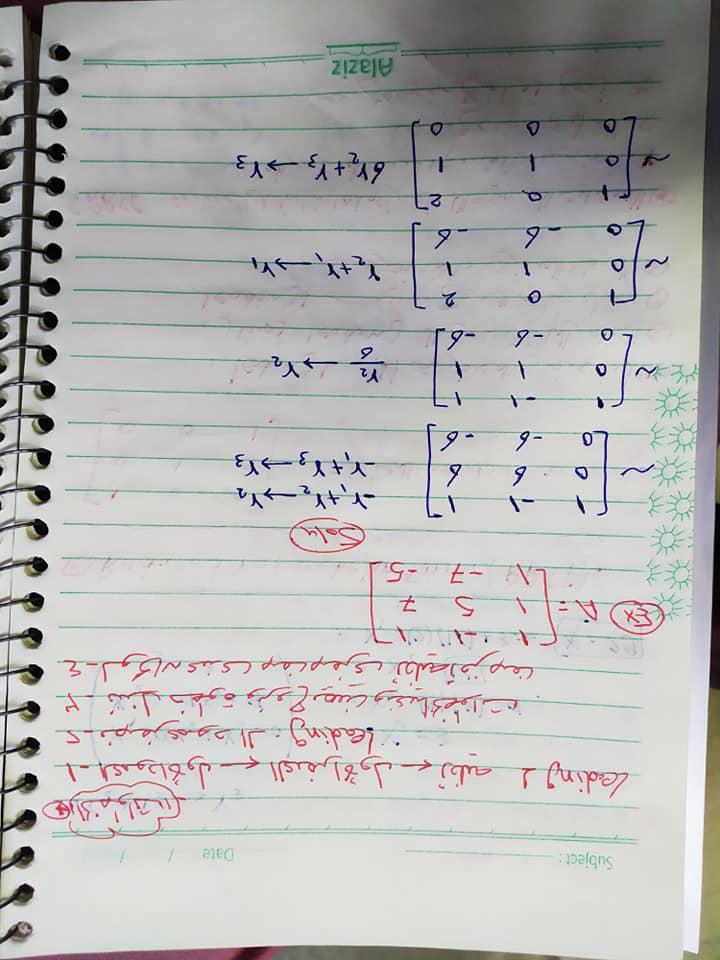 Subject: Date / /
* الخطوات !!
١- العمود الأول ← الصف الأول ← نخليه Leading 1
٢- نصفر عمود الـ Leading 1
٣- ننزل خطوة ونروح يمين ونعيد الخطوات.
٤- لو كان عندى صف صفرى نخليه آخر صف
Ex A = [ 1 -1 1
1 5 7
1 -7 -5 ]
Solu
~ [ 1 -1 1 -r₁+r₂→r₂
0 6 6 -r₁+r₃→r₃
0 -6 -6 ]
~ [ 1 -1 1
0 1 1 r₂/6 →r₂
0 -6 -6 ]
~ [ 1 0 2
0 1 1 r₂+r₁→r₁
0 -6 -6 ]
~ [ 1 0 2
0 1 1 6r₂+r₃→r₃
0 0 0 ]
Alaziz